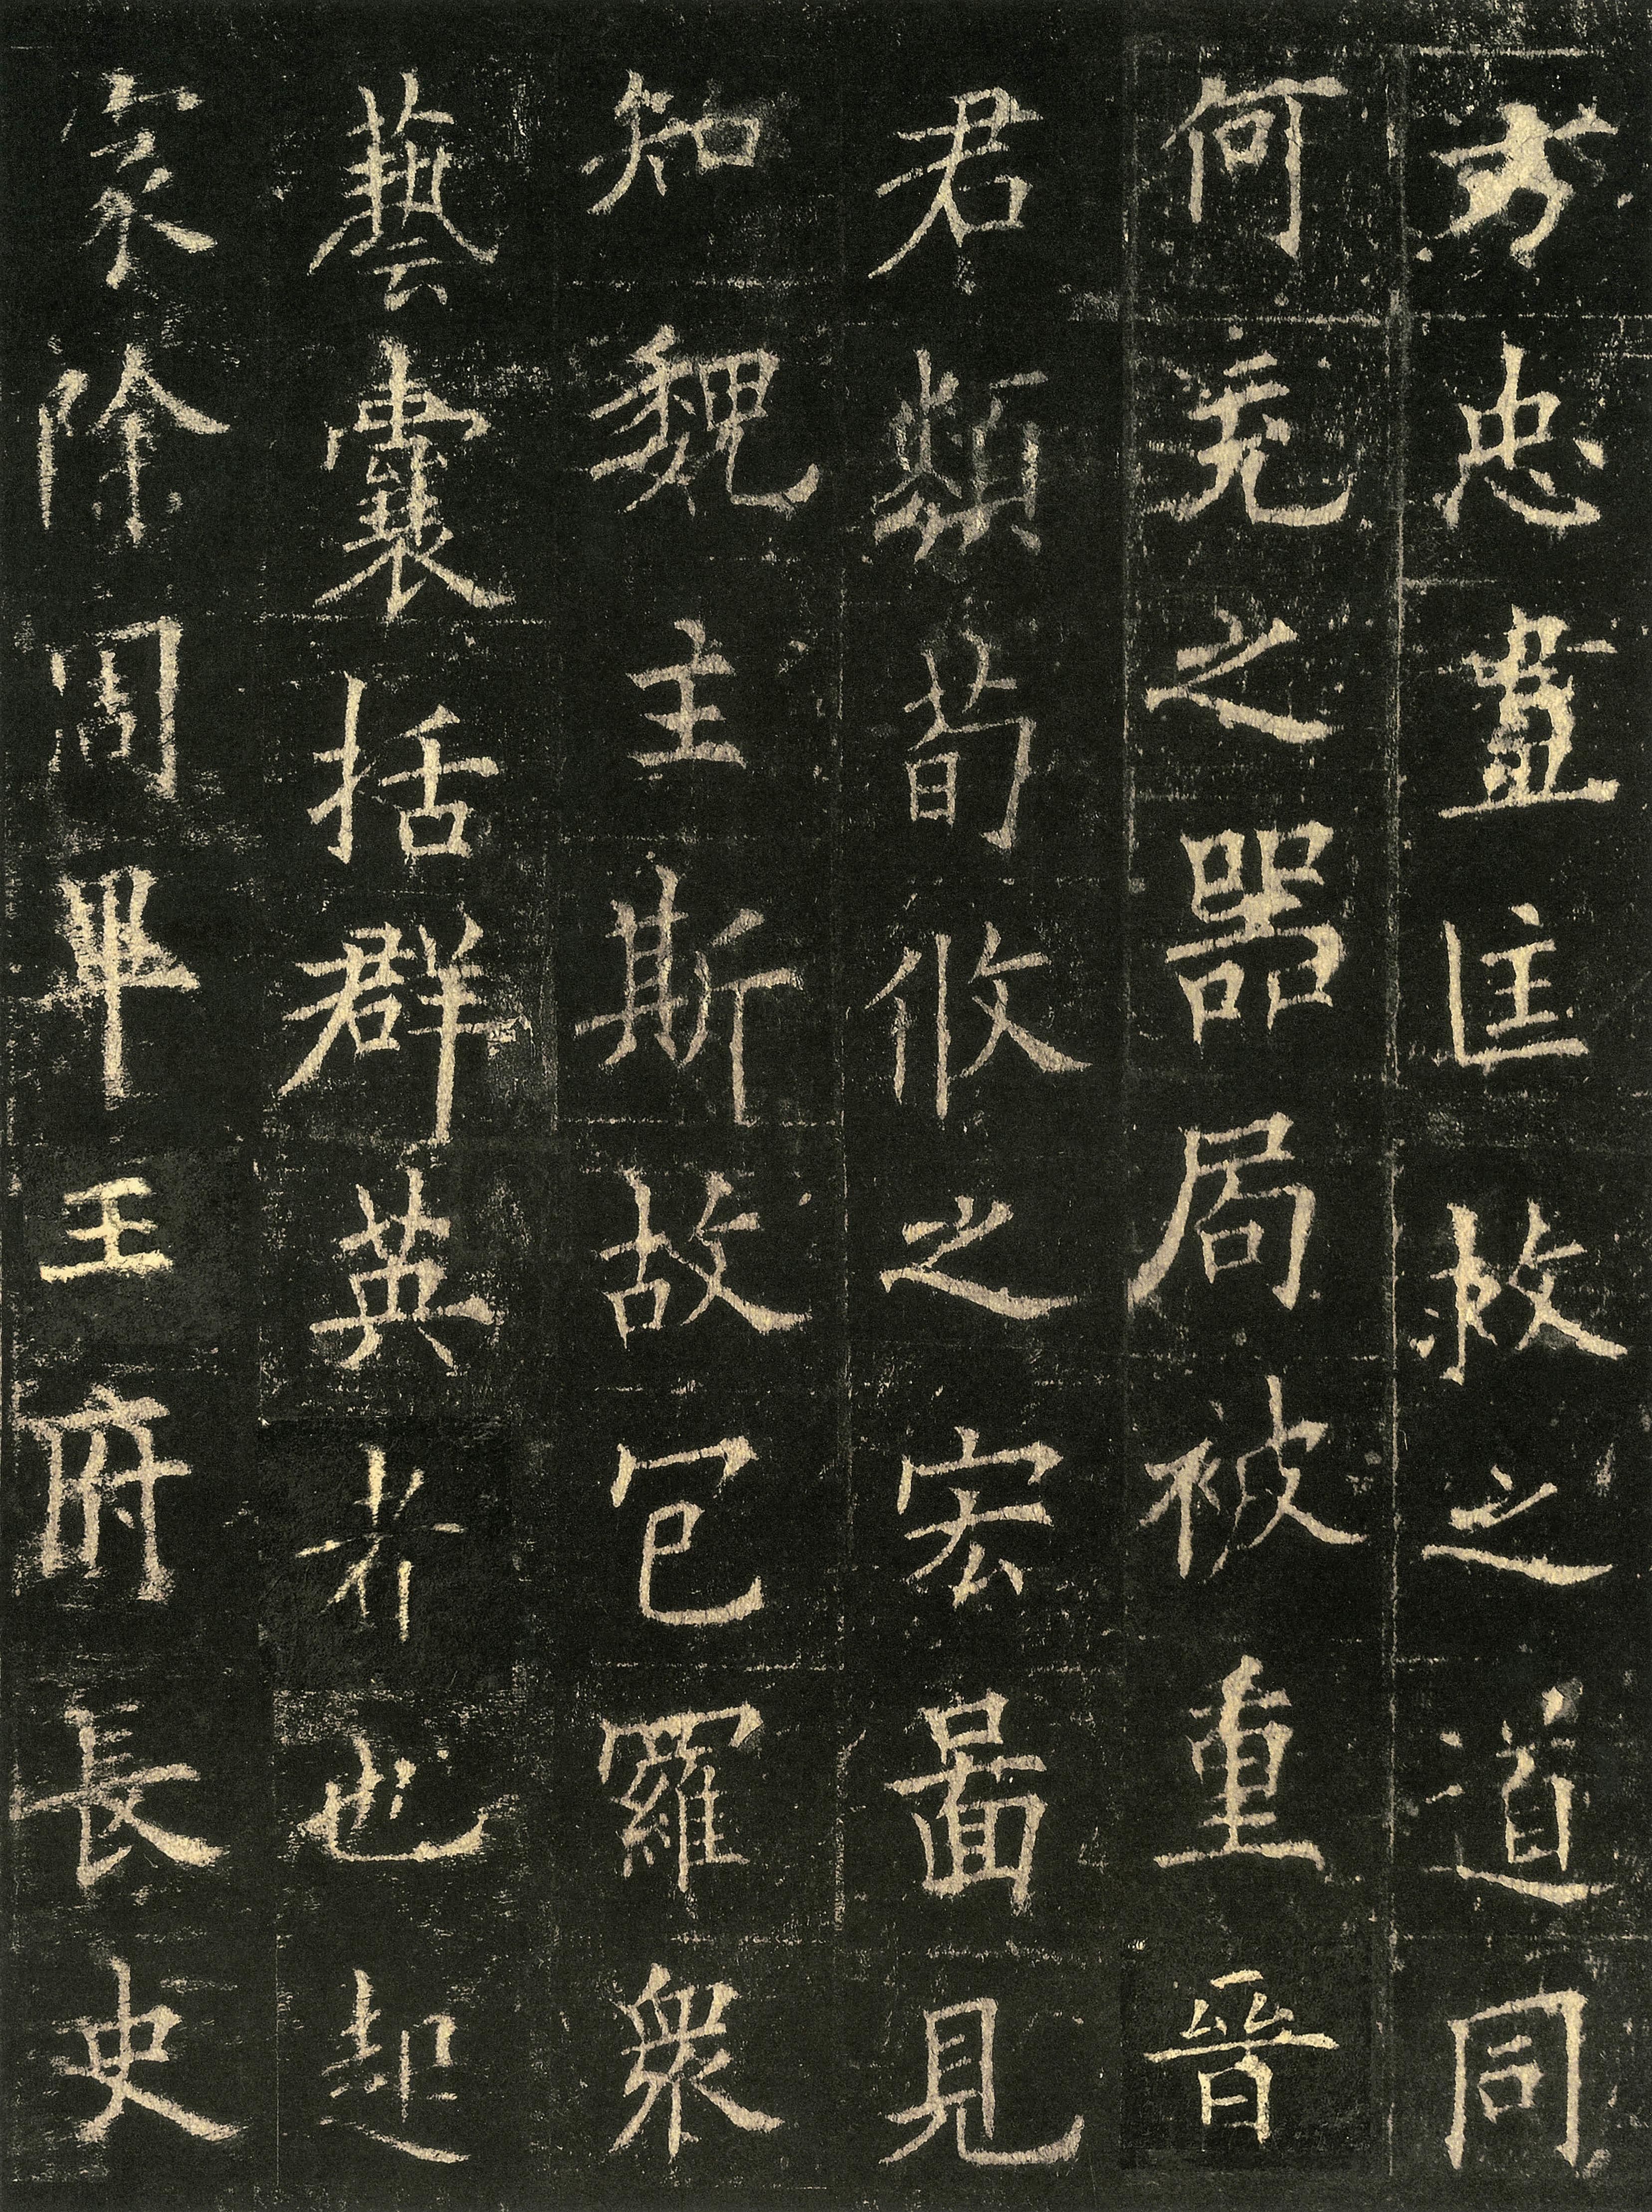 方忠盡匡救之道同
何充之器局被重晉
君類荀攸之宏啚見
知魏主斯故包羅衆
藝囊括群英者也起
家除周畢王府長史